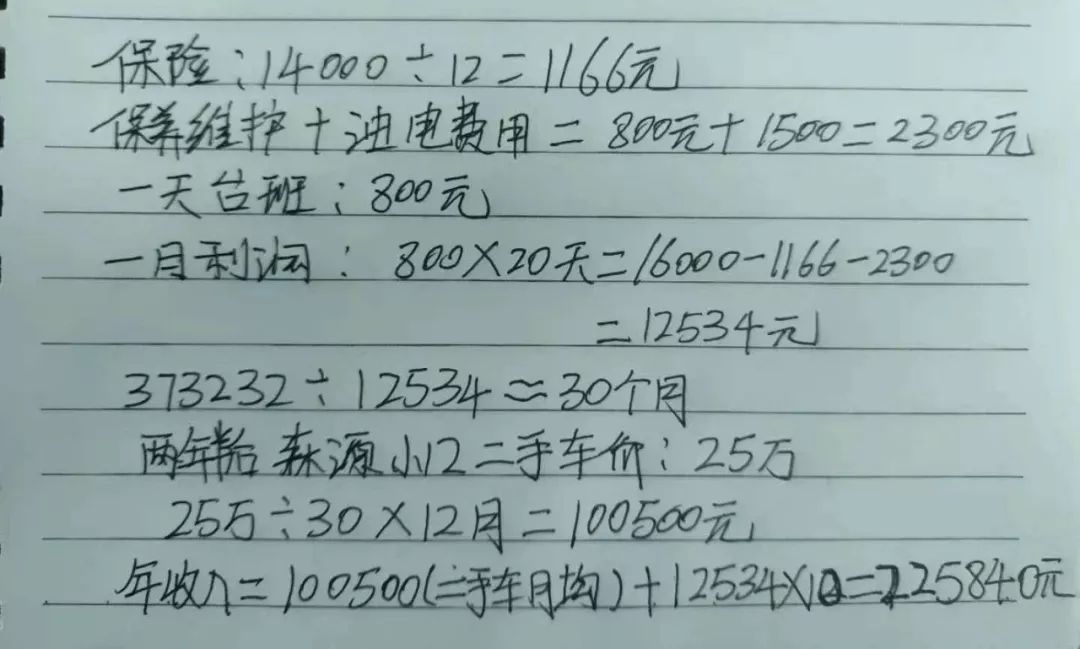 保险：14000÷12＝1166元
保养维护＋油电费用＝800元＋1500＝2300元
一天台班：800元
一月利润：800×20天＝16000－1166－2300
＝12534元
373232÷12534≈30个月
两年龄 森源小12二手车价：25万
25万÷30×12月＝100500元
年收入＝100500(二手车月均)＋12534×10＝225840元